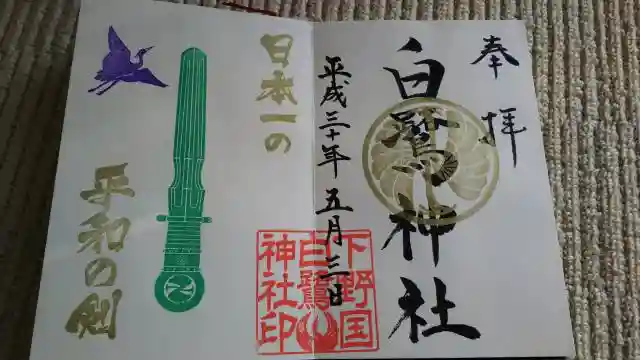 奉拝
白鷺神社
平成三十年五月三日
下野国
白鷺
神社印
日本一の
平和の剣